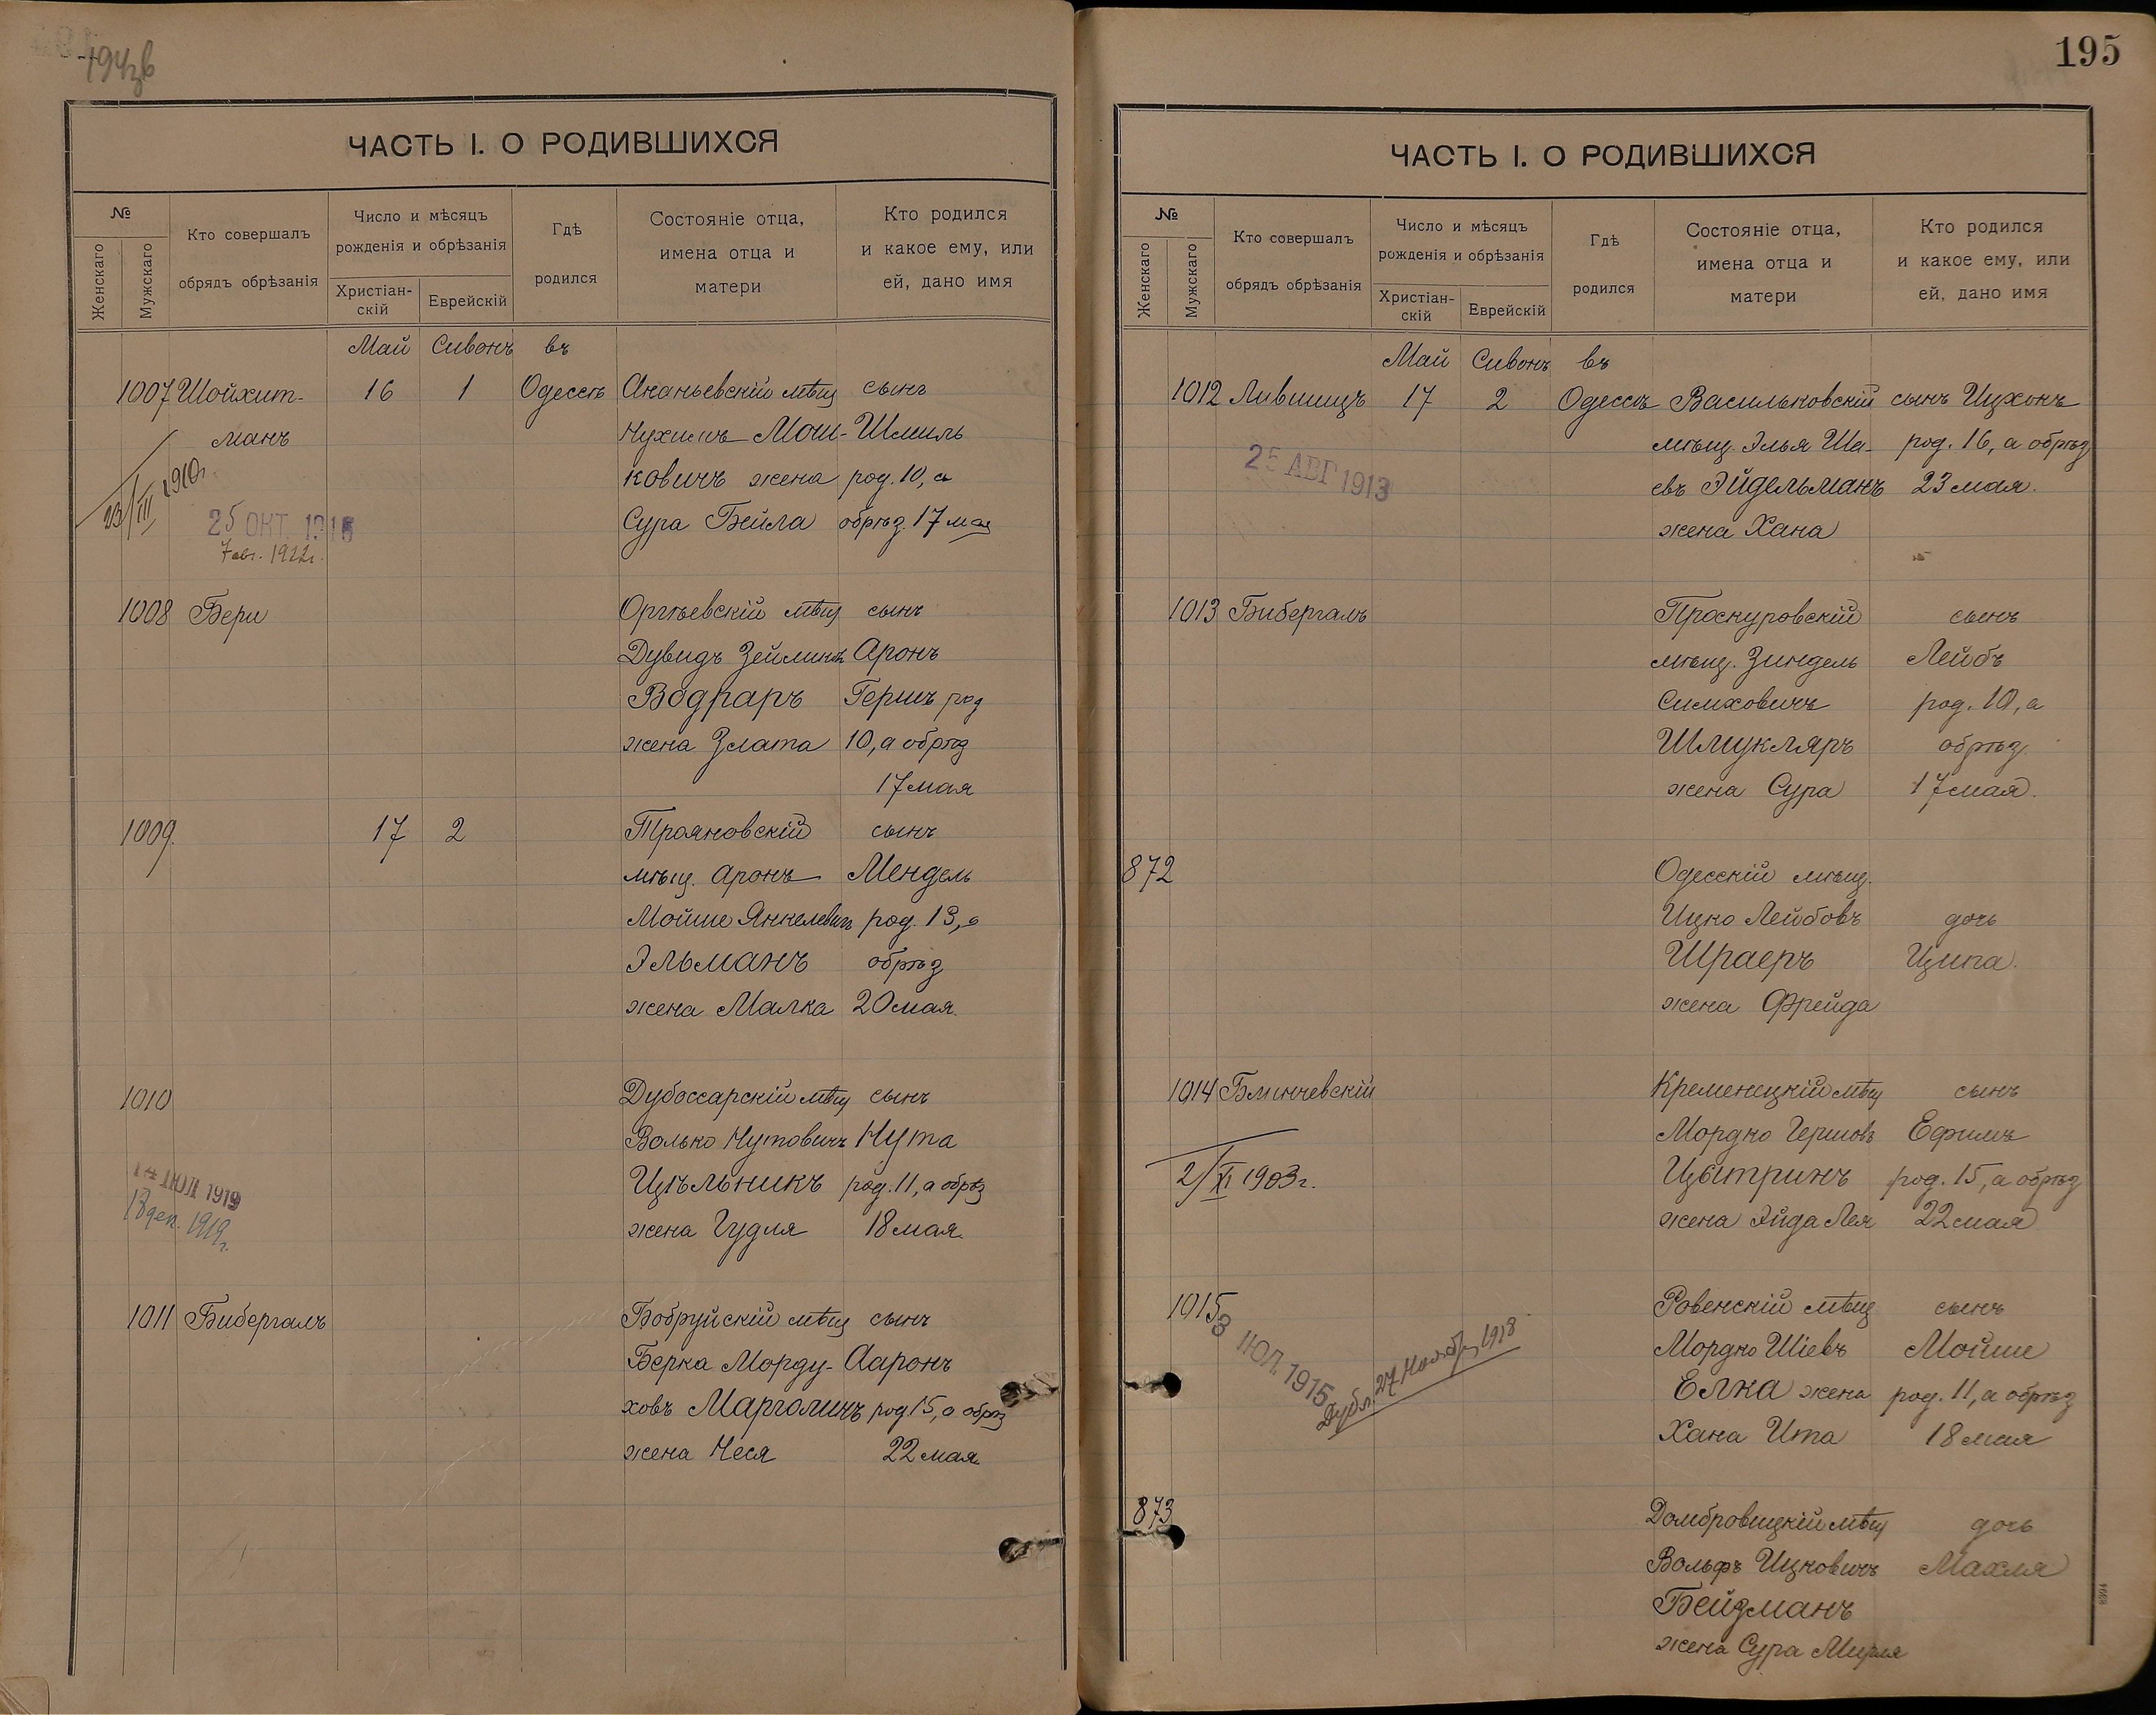 194 зв
ЧАСТЬ I. О РОДИВШИХСЯ
№
Женскаго
Мужскаго
Кто совершалъ
обрядъ обрѣзанія
Число и мѣсяцъ
рожденія и обрѣзанія
Христіан-
скій
Еврейскій
Гдѣ
родился
Состояніе отца,
имена отца и
матери
Кто родился
и какое ему, или
ей, дано имя
Май Сивонъ въ
1007 Шойхит- 16 1 Одессѣ Ананьевскій мѣщ сынъ
манъ Нухимъ Мош- Шмиль
23/III 1910г.
ковичъ жена род. 10, а
25 ОКТ. 1916
Сура Бейла обрѣз. 17 мая
7 авг. 1922г.
1008 Бери Оргѣевскій мѣщ сынъ
Дувидъ Зейликъ Аронъ
Водраръ Гершъ род
жена Злата 10, а обрѣз
17 мая
1009. 17 2 Трояновскій сынъ
мѣщ. Аронъ Мендель
Мойше Янкелевичъ род. 13, а
Эльманъ обрѣз
жена Малка 20 мая.
1010 Дубоссарскій мѣщ сынъ
Волько Нутовичъ Нута
14 ІЮЛ 1919
Цѣльникъ род. 11, а обрѣз
13 дек. 1919г.
жена Гудля 18 мая.
1011 Бибергалъ Бобруйскій мѣщ сынъ
Берка Морду- Ааронъ
ховъ Марголинъ род 15, а обрѣз
жена Неся 22 мая
195
ЧАСТЬ I. О РОДИВШИХСЯ
№
Женскаго
Мужскаго
Кто совершалъ
обрядъ обрѣзанія
Число и мѣсяцъ
рожденія и обрѣзанія
Христіан-
скій
Еврейскій
Гдѣ
родился
Состояніе отца,
имена отца и
матери
Кто родился
и какое ему, или
ей, дано имя
Май Сивонъ въ
1012 Лившицъ 17 2 Одессѣ Васильковскій сынъ Ицхокъ
мѣщ. Элья Ша- род. 16, а обрѣз
25 АВГ 1913
евъ Эйдельманъ 23 мая.
жена Хана
1013 Бибергалъ Проскуровскій сынъ
мѣщ. Зиндель Лейбъ
Симховичъ род. 10, а
Шмукляръ обрѣз.
жена Сура 17 мая.
872 Одесскій мѣщ.
Ицко Лейбовъ дочь
Шраеръ Ципа.
жена Фрейда
1014 Блинчевскій Кременецкій мѣщ сынъ
Мордко Гершовъ Ефимъ
2/XI 1903г.
Цытринъ род. 15, а обрѣз
жена Эйда Лея 22 мая
1015 Ровенскій мѣщ сынъ
3 ІЮЛ. 1915
Дубл. 27 Ноябр, 1918
Мордко Шіевъ Мойше
Елка жена род. 11, а обрѣз
Хана Ита 18 мая
873 Домбровицкій мѣщ дочь
Вольфъ Ицковичъ Махля
Бейзманъ
жена Сура Мирля